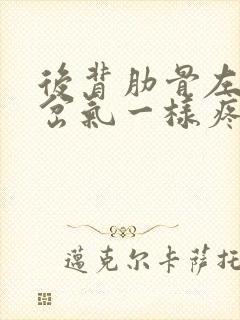 後背肋骨左
岔氣一樣疼
邁克尔卡萨托